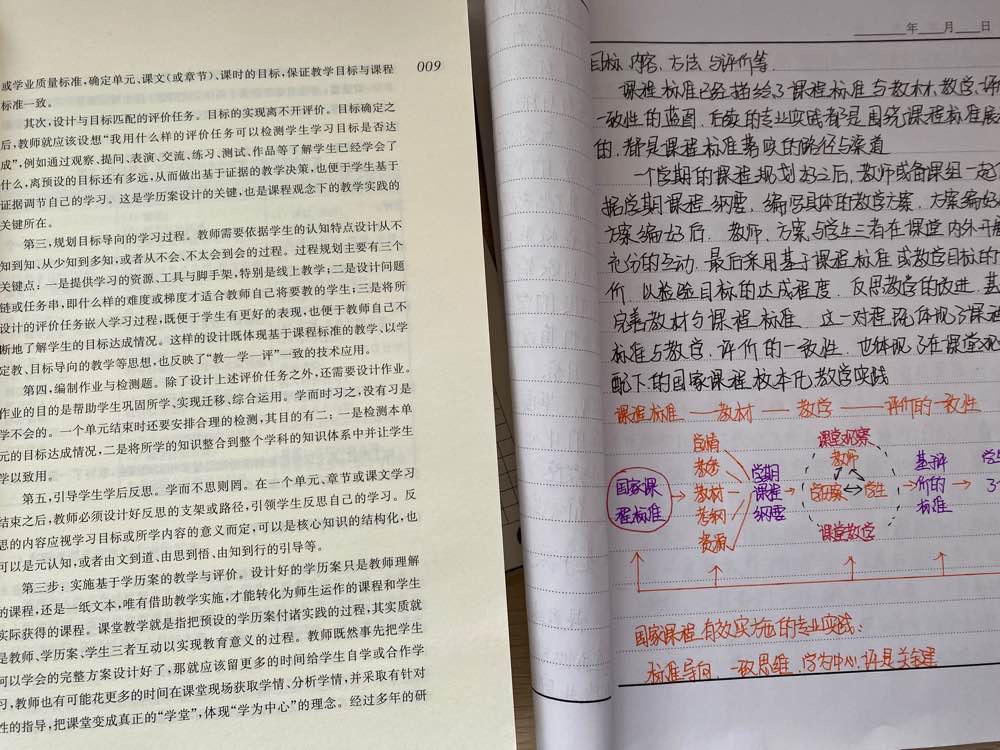 009
或学业质量标准,确定单元、课文(或章节)、课时的目标,保证教学目标与课程
标准一致。
其次,设计与目标匹配的评价任务。目标的实现离不开评价。目标确定之
后,教师就应该设想“我用什么样的评价任务可以检测学生学习目标是否达
成”,例如通过观察、提问、表演、交流、练习、测试、作品等了解学生已经学会了
什么,离预设的目标还有多远,从而做出基于证据的教学决策,也便于学生基于
证据调节自己的学习。这是学历案设计的关键,也是课程观念下的教学实践的
关键所在。
第三,规划目标导向的学习过程。教师需要依据学生的认知特点设计从不
知到知、从少知到多知,或者从不会、不太会到会的过程。过程规划主要有三个
关键点:一是提供学习的资源、工具与脚手架,特别是线上教学;二是设计问题
链或任务串,即什么样的难度或梯度才适合教师自己将要教的学生;三是将所
设计的评价任务嵌入学习过程,既便于学生有更好的表现,也便于教师自己不
断地了解学生的目标达成情况。这样的设计既体现基于课程标准的教学、以学
定教、目标导向的教学等思想,也反映了“教—学—评”一致的技术应用。
第四,编制作业与检测题。除了设计上述评价任务之外,还需要设计作业。
作业的目的是帮助学生巩固所学、实现迁移、综合运用。学而时习之,没有习是
学不会的。一个单元结束时还要安排合理的检测,其目的有二:一是检测本单
元的目标达成情况,二是将所学的知识整合到整个学科的知识体系中并让学生
学以致用。
第五,引导学生学后反思。学而不思则罔。在一个单元、章节或课文学习
结束之后,教师必须设计好反思的支架或路径,引领学生反思自己的学习。反
思的内容应视学习目标或所学内容的意义而定,可以是核心知识的结构化,也
可以是元认知,或者由文到道、由思到悟、由知到行的引导等。
第三步:实施基于学历案的教学与评价。设计好的学历案只是教师理解
的课程,还是一纸文本,唯有借助教学实施,才能转化为师生运作的课程和学生
实际获得的课程。课堂教学就是指把预设的学历案付诸实践的过程,其实质就
是教师、学历案、学生三者互动以实现教育意义的过程。教师既然事先把学生
何以学会的完整方案设计好了,那就应该留更多的时间给学生自学或合作学
习,教师也有可能花更多的时间在课堂现场获取学情、分析学情,并采取有针对
性的指导,把课堂变成真正的“学堂”,体现“学为中心”的理念。经过多年的研
年 月 日
目标、内容、方法、与评价等
课程标准已经描绘了课程标准与教材、教学、评
一致性的蓝图,后续的专业实践都是围绕课程标准展
的,都是课程标准落实的路径与渠道
一个学期的课程规划好之后,教师或备课组一起
据学期课程纲要,编写具体的教学方案,方案编好
方案编好后,教师、方案与学生三者在课堂内外开展
充分的互动,最后采用基于课程标准或教学目标的
价,以检验目标的达成程度,反思教学的改进,甚
完善教材与课程标准,这一过程既体现了课程
标准与教学、评价的一致性,也体现了在课堂观
配下的国家课程校本化教学实践
课程标准——教材——教学——评价的一致性
国家课程标准
学情
教参
教材
考纲
资源
学期课程纲要
课堂观察
教师
学生
课堂教学
基评价的标准
学生
国家课程有效实施的专业实践:
标准导向、一致思维、学为中心、评是关键